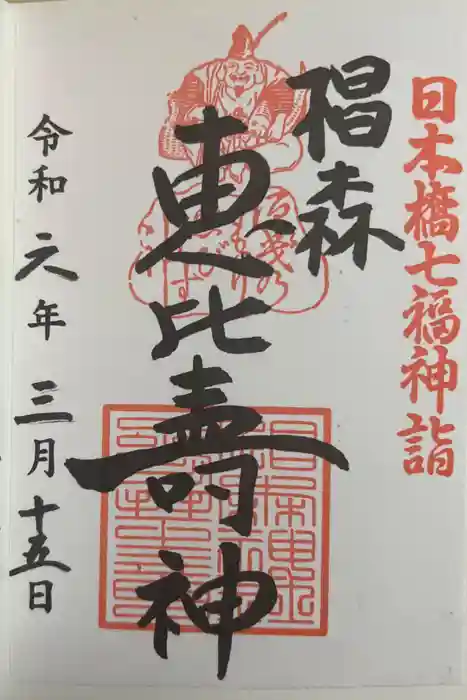 日本橋七福神詣
椙森
恵比壽神
令和六年三月十五日